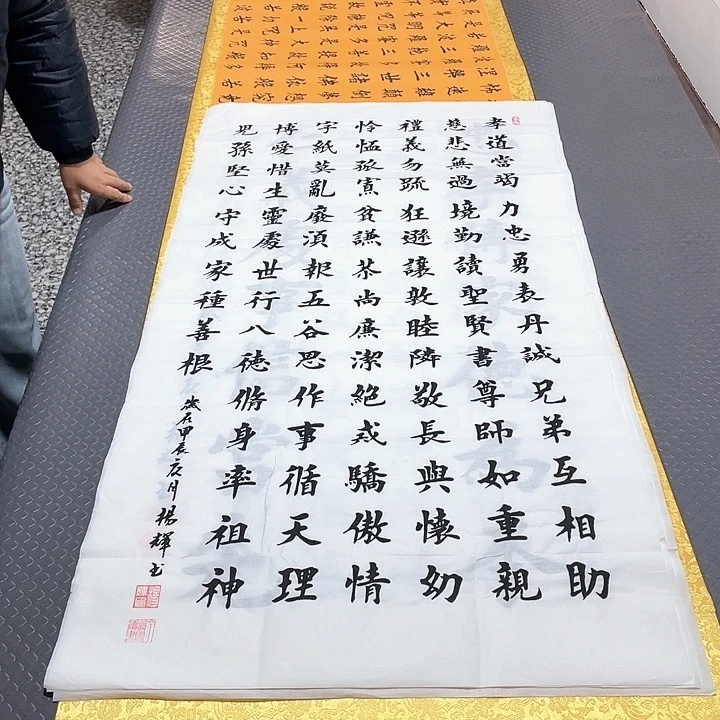 孝道當竭力忠勇表丹誠兄弟互相助
慈悲無過境勤讀聖賢書尊師如重親
禮義勿疏狂遜讓敦睦隣敬長與懷幼
怜恤孤寡貧謙恭尚廉潔絕戒驕傲情
字紙莫亂廢須報五谷恩作事循天理
博愛惜生靈處世行八德脩身率祖神
児孫堅心守成家種善根
歲在甲辰月楊輝書